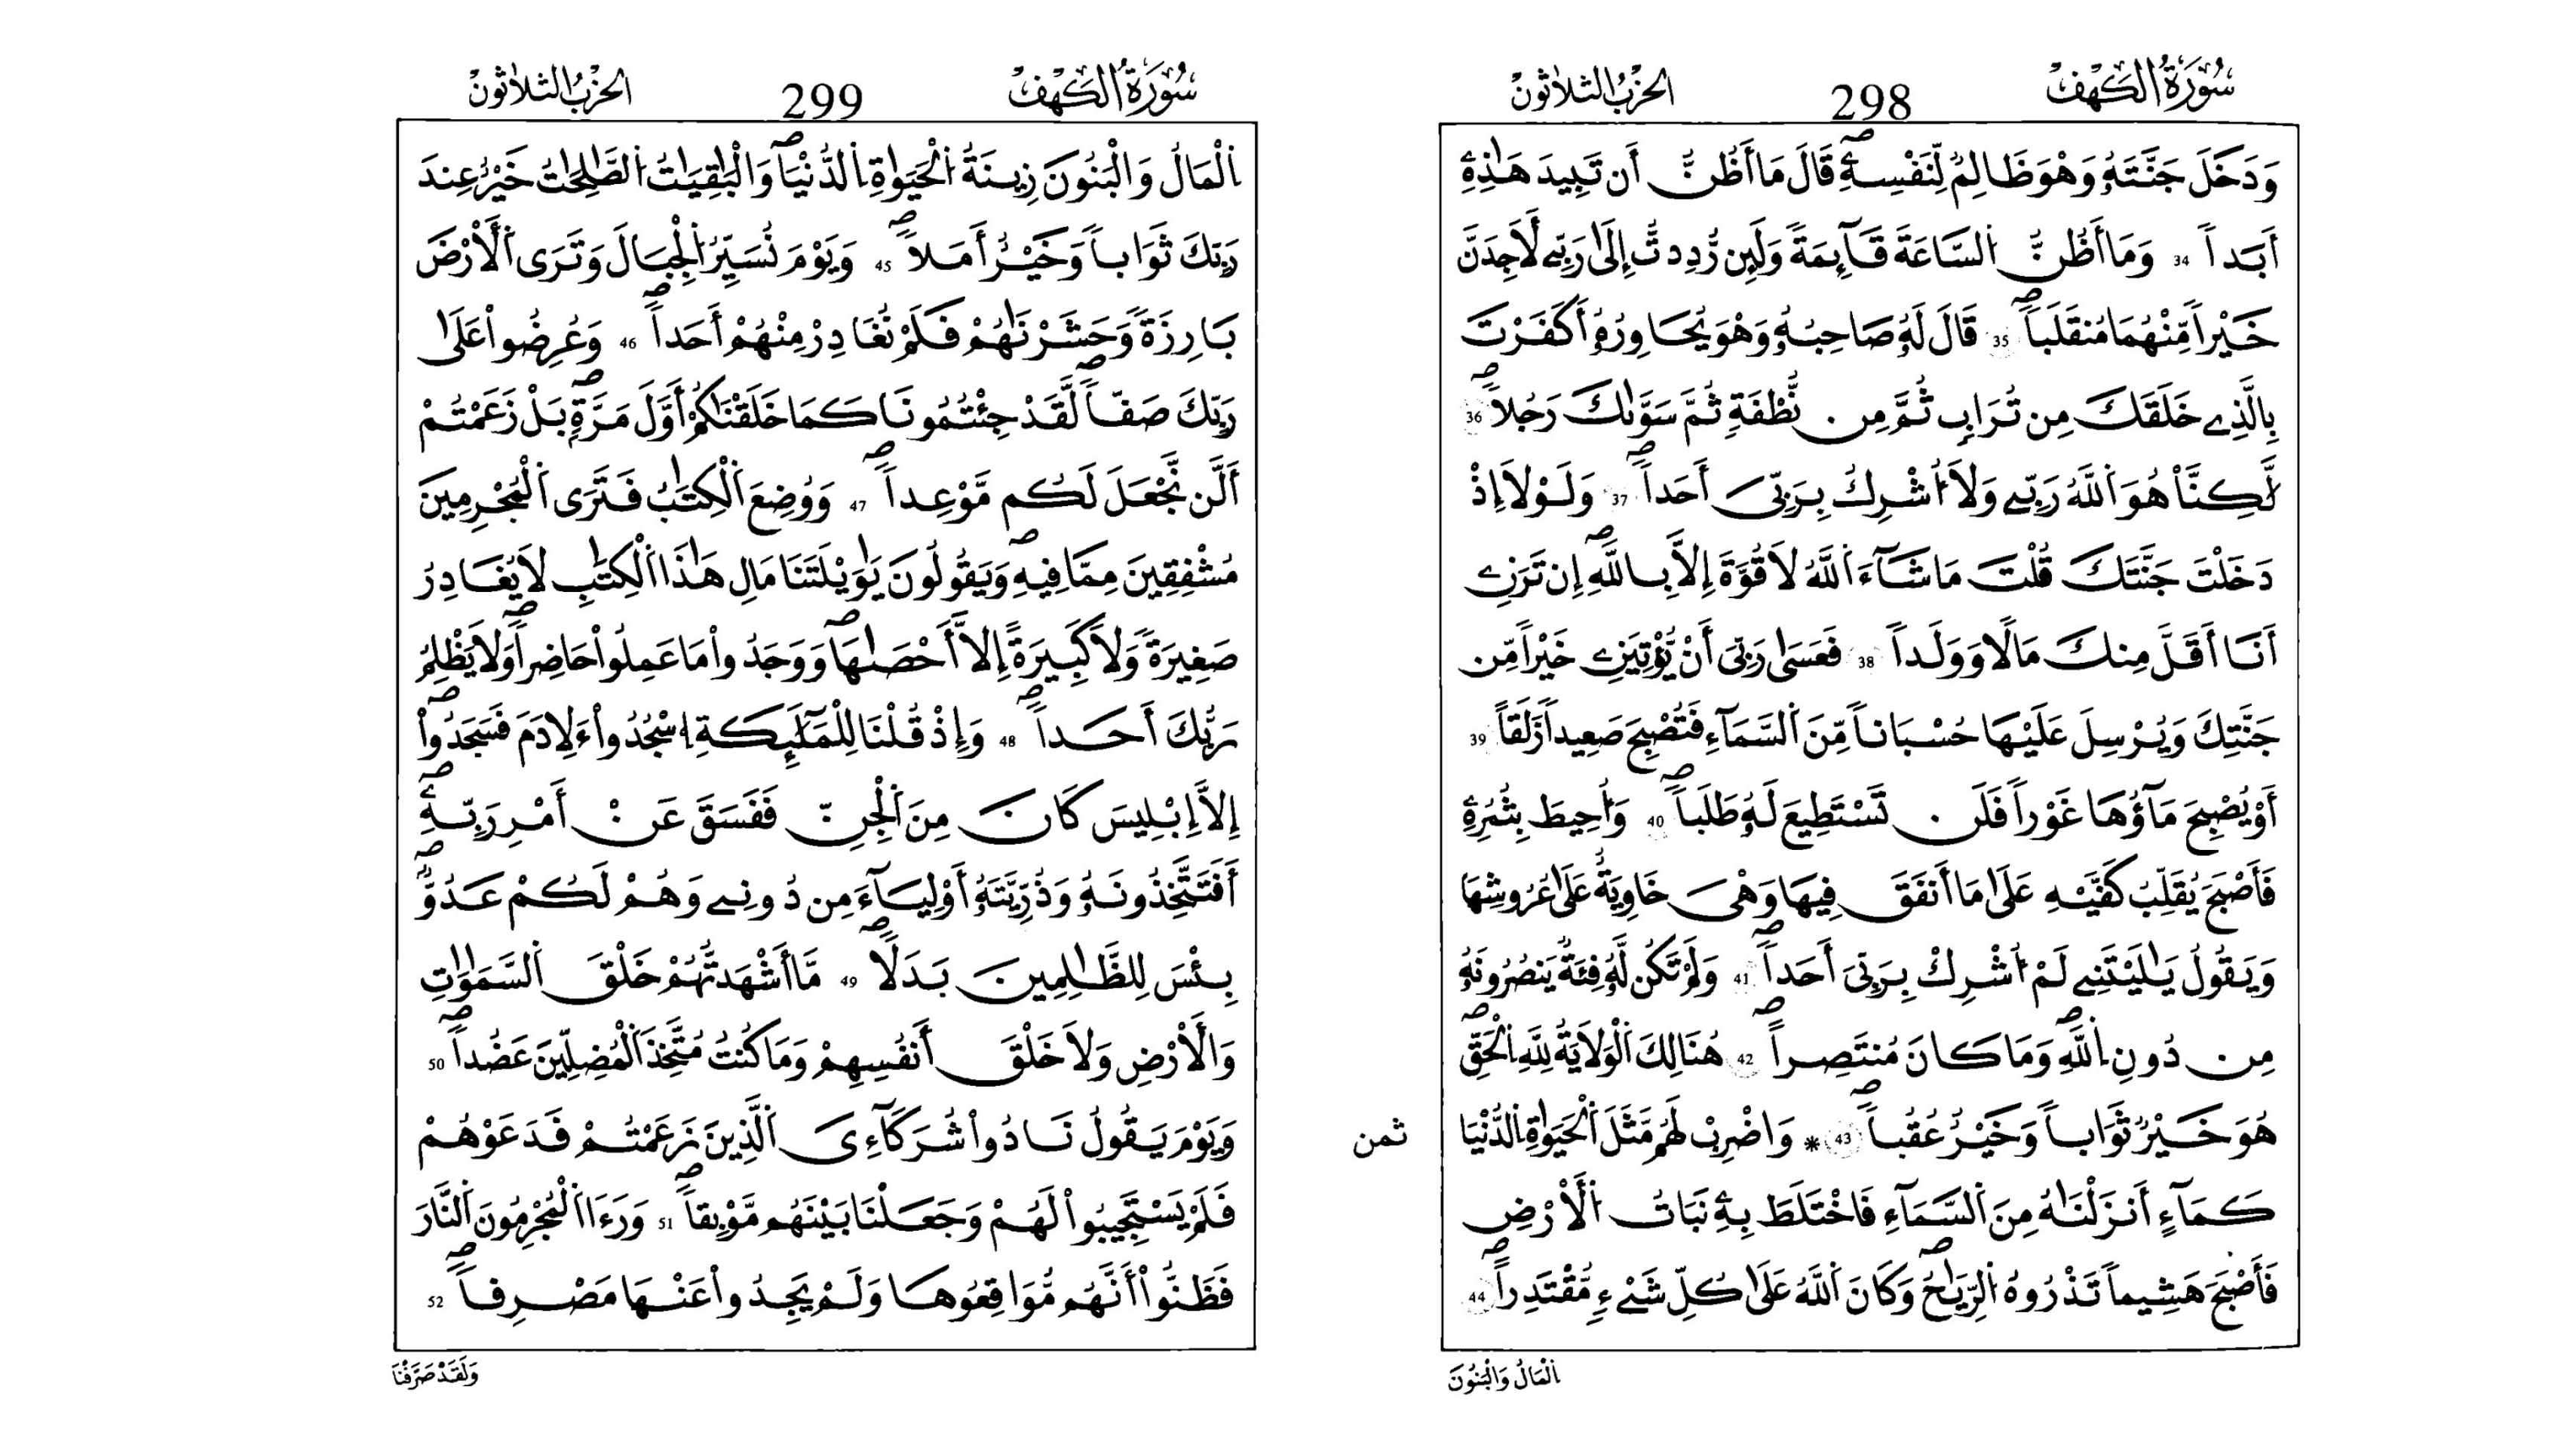 سُورَةُ الْكَهْفِ 298 الحِزْبُ الثَّلَاثُونَ
وَدَخَلَ جَنَّتَهُۥ وَهْوَ ظَالِمٌ لِّنَفْسِهِۦۖ قَالَ مَا أَظُنُّ أَن تَبِيدَ هَٰذِهِۦ
أَبَداٗ 34 وَمَا أَظُنُّ اُ۬لسَّاعَةَ قَآئِمَةٗ وَلَئِن رُّدِدتُّ إِلَىٰ رَبِّے لَأَجِدَنَّ
خَيْراٗ مِّنْهُمَا مُنقَلَباٗۖ 35 قَالَ لَهُۥ صَاحِبُهُۥ وَهْوَ يُحَاوِرُهُۥ أَكَفَرْتَ
بِالَّذِے خَلَقَكَ مِن تُرَابٖ ثُمَّ مِن نُّطْفَةٖ ثُمَّ سَوَّىٰكَ رَجُلاٗۖ 36
لَّٰكِنَّا۠ هُوَ اَ۬للَّهُ رَبِّے وَلَا أُشْرِكُ بِرَبِّيَ أَحَداٗۖ 37 وَلَوْلَا إِذْ
دَخَلْتَ جَنَّتَكَ قُلْتَ مَا شَآءَ اَ۬للَّهُ لَا قُوَّةَ إِلَّا بِاللَّهِۖ إِن تَرَنِۦ
أَنَا أَقَلَّ مِنكَ مَالاٗ وَوَلَداٗ 38 فَعَسَىٰ رَبِّيَ أَنْ يُّؤْتِيَنِۦ خَيْراٗ مِّن
جَنَّتِكَ وَيُرْسِلَ عَلَيْهَا حُسْبَاناٗ مِّنَ اَ۬لسَّمَآءِ فَتُصْبِحَ صَعِيداٗ زَلَقاً 39
أَوْ يُصْبِحَ مَآؤُهَا غَوْراٗ فَلَن تَسْتَطِيعَ لَهُۥ طَلَباٗۖ 40 وَأُحِيطَ بِثُمُرِهِۦ
فَأَصْبَحَ يُقَلِّبُ كَفَّيْهِ عَلَىٰ مَا أَنفَقَ فِيهَا وَهْيَ خَاوِيَةٌ عَلَىٰ عُرُوشِهَا
وَيَقُولُ يَٰلَيْتَنِے لَمْ أُشْرِكْ بِرَبِّيَ أَحَداٗۖ 41 وَلَمْ تَكُن لَّهُۥ فِئَةٌ يَنصُرُونَهُۥ
مِن دُونِ اِ۬للَّهِۖ وَمَا كَانَ مُنتَصِراًۖ 42 هُنَالِكَ اَ۬لْوَلَٰيَةُ لِلهِ اِ۬لْحَقِّۖ
هُوَ خَيْرٌ ثَوَاباٗ وَخَيْرٌ عُقُباٗۖ 43 * وَاضْرِبْ لَهُم مَّثَلَ اَ۬لْحَيَوٰةِ اِ۬لدُّنْيَا
ثمن
كَمَآءٍ أَنزَلْنَٰهُ مِنَ اَ۬لسَّمَآءِ فَاخْتَلَطَ بِهِۦ نَبَاتُ اُ۬لْأَرْضِ
فَأَصْبَحَ هَشِيماٗ تَذْرُوهُ اُ۬لرِّيَٰحُۖ وَكَانَ اَ۬للَّهُ عَلَىٰ كُلِّ شَےْءٖ مُّقْتَدِراًۖ 44
اَ۬لْمَالُ وَالْبَنُونَ
سُورَةُ الْكَهْفِ 299 الحِزْبُ الثَّلَاثُونَ
اَ۬لْمَالُ وَالْبَنُونَ زِينَةُ اُ۬لْحَيَوٰةِ اِ۬لدُّنْيَاۖ وَالْبَٰقِيَٰتُ اُ۬لصَّٰلِحَٰتُ خَيْرٌ عِندَ
رَبِّكَ ثَوَاباٗ وَخَيْرٌ أَمَلاٗۖ 45 وَيَوْمَ نُسَيِّرُ اُ۬لْجِبَالَ وَتَرَى اَ۬لْأَرْضَ
بَارِزَةٗ وَحَشَرْنَٰهُمْ فَلَمْ نُغَادِرْ مِنْهُمْ أَحَداٗۖ 46 وَعُرِضُواْ عَلَىٰ
رَبِّكَ صَفّاٗۖ لَّقَدْ جِئْتُمُونَا كَمَا خَلَقْنَٰكُمْ أَوَّلَ مَرَّةِۭۖ بَلْ زَعَمْتُمْ
أَلَّن نَّجْعَلَ لَكُم مَّوْعِداٗۖ 47 وَوُضِعَ اَ۬لْكِتَٰبُ فَتَرَى اَ۬لْمُجْرِمِينَ
مُشْفِقِينَ مِمَّا فِيهِۖ وَيَقُولُونَ يَٰوَيْلَتَنَا مَالِ هَٰذَا اَ۬لْكِتَٰبِ لَا يُغَادِرُ
صَغِيرَةٗ وَلَا كَبِيرَةً إِلَّا أَحْصَىٰهَاۖ وَوَجَدُواْ مَا عَمِلُواْ حَاضِراٗۖ وَلَا يَظْلِمُ
رَبُّكَ أَحَداٗۖ 48 وَإِذْ قُلْنَا لِلْمَلَٰٓئِكَةِ اِ۟سْجُدُواْ ءَلِادَمَ فَسَجَدُواْۖ
إِلَّا إِبْلِيسَ كَانَ مِنَ اَ۬لْجِنِّ فَفَسَقَ عَنْ أَمْرِ رَبِّهِۦۖ
أَفَتَتَّخِذُونَهُۥ وَذُرِّيَّتَهُۥ أَوْلِيَآءَ مِن دُونِے وَهُمْ لَكُمْ عَدُوُّۢۖ
بِئْسَ لِلظَّٰلِمِينَ بَدَلاٗۖ 49 مَّا أَشْهَدتُّهُمْ خَلْقَ اَ۬لسَّمَٰوَٰتِ
وَالْأَرْضِ وَلَا خَلْقَ أَنفُسِهِمْ وَمَا كُنتُ مُتَّخِذَ اَ۬لْمُضِلِّينَ عَضُداٗۖ 50
وَيَوْمَ يَقُولُ نَادُواْ شُرَكَآءِيَ اَ۬لَّذِينَ زَعَمْتُمْ فَدَعَوْهُمْ
فَلَمْ يَسْتَجِيبُواْ لَهُمْ وَجَعَلْنَا بَيْنَهُم مَّوْبِقاٗۖ 51 وَرَءَا اَ۬لْمُجْرِمُونَ اَ۬لنَّارَ
فَظَنُّواْ أَنَّهُم مُّوَاقِعُوهَا وَلَمْ يَجِدُواْ عَنْهَا مَصْرِفاٗۖ 52
وَلَقَدْ صَرَّفْنَا